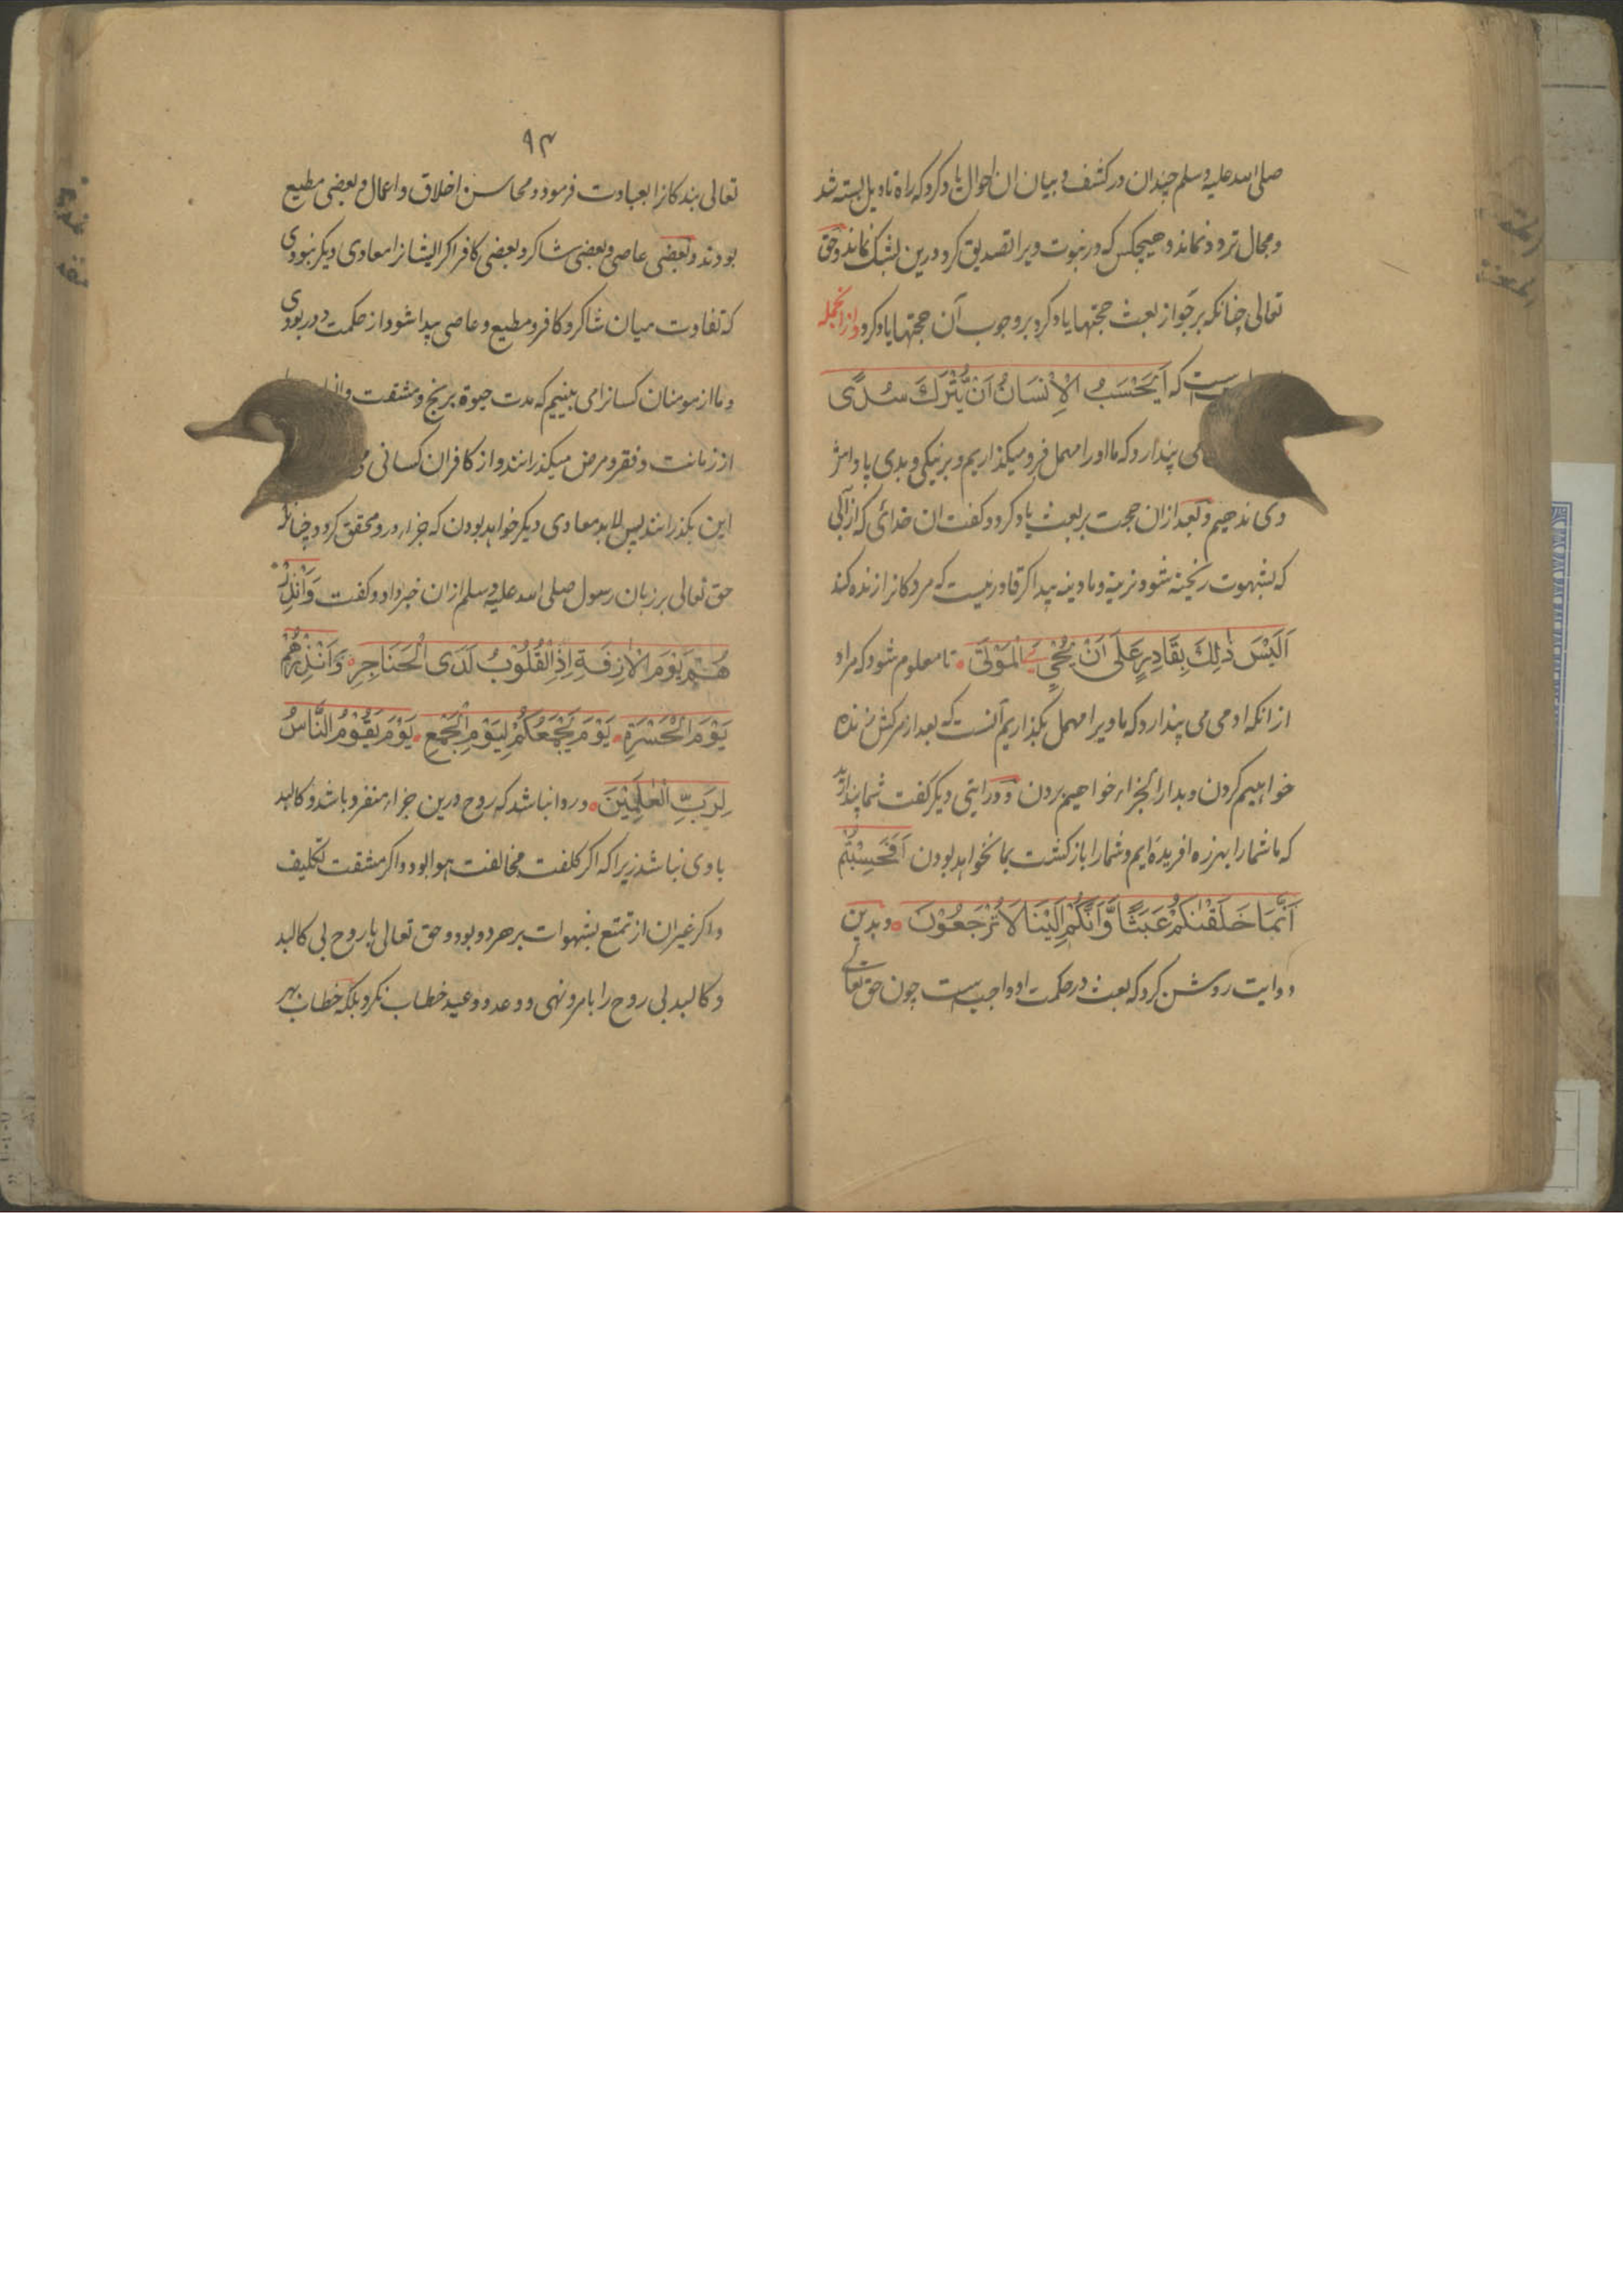 صلی الله علیه وسلم چندان در کشف و بیان ان احوال یاد کرد که راه تاویل بسته شد
و مجال تردد نماند و هیچکس که در نبوت ویرا تصدیق کرد درین بشک نماند و حق
تعالی چنانکه بر جواز بعث حجتها یاد کرد بر وجوب آن حجتها یاد کرد و از انجمله
که اَیَحْسَبُ الْاِنْسَانُ اَنْ یُّتْرَکَ سُدًی
می پندارد که ما اورا مهمل فرو میگذاریم و بر نیکی و بدی پاداش
وی ندهیم و بعد ازان حجت بر بعث یاد کرد و کفت ان خدائی که از آبی
که بشهوت ریخته شود نرینه و مادینه پیدا کرد قادر نیست که مردکانرا زنده کند
اَلَیْسَ ذٰلِکَ بِقَادِرٍ عَلٰی اَنْ یُّحْیِیَ الْمَوْتٰی تا معلوم شود که مراد
ازانکه ادمی می پندارد که ما ویرا مهمل بگذاریم آنست که بعد از مرکش زنده
خواهیم کردن و بدار الجزاء خواهیم بردن و در ایتی دیکر کفت شما پندارید
که ما شما را بهرزه افریده ایم و شما را بازکشت بما نخواهد بودن اَفَحَسِبْتُمْ
اَنَّمَا خَلَقْنٰکُمْ عَبَثًا وَّاَنَّکُمْ اِلَیْنَا لَا تُرْجَعُوْنَ و بدین
دو ایت روشن کرد که بعث در حکمت او واجبست چون حق تعالی
۹۴
تعالی بندکانرا بعبادت فرمود و محاسن اخلاق و اعمال و بعضی مطیع
بودند و بعضی عاصی و بعضی شاکر و بعضی کافر اکر ایشانرا معادی دیکر نبودی
که تفاوت میان شاکر و کافر و مطیع و عاصی پیدا شود از حکمت دور بودی
و ما از مومنان کسانرا می بینیم که مدت حیوة برنج و مشقت
از زمانت و فقر و مرض میکذرانند و از کافران کسانی
این بکذرانند پس لابد معادی دیکر خواهد بودن که جزا درو محقق کردد چنانکه
حق تعالی بر زبان رسول صلی الله علیه وسلم ازان خبر داد و کفت وَاَنْذِرْ
هُمْ یَوْمَ الْاٰزِفَةِ اِذِ الْقُلُوْبُ لَدَی الْحَنَاجِرِ وَاَنْذِرْهُمْ
یَوْمَ الْحَسْرَةِ یَوْمَ یَجْمَعُکُمْ لِیَوْمِ الْجَمْعِ یَوْمَ یَقُوْمُ النَّاسُ
لِرَبِّ الْعٰلَمِیْنَ و روا نباشد که روح درین جزاء منفرد باشد و کالبد
با وی نباشد زیرا که اکر کلفت مخالفت هوا بود و اکر مشقت تکلیف
و اکر غیران از تمتع بشهوات بر هر دو بود و حق تعالی با روح بی کالبد
و کالبد بی روح را بامر و نهی و وعد و وعید خطاب نکرد بلکه خطاب بهر